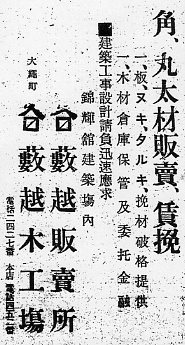 角、丸太材販賣、賃挽
一、板、ヌキ、タルキ、挽材破格提供
一、木材倉庫保管及委托金融
建築工事設計請負迅速應求
錦輝館建築塲內
藪越販賣所
大黑町
藪越木工塲
電話二四二七番
本店電話四五二番